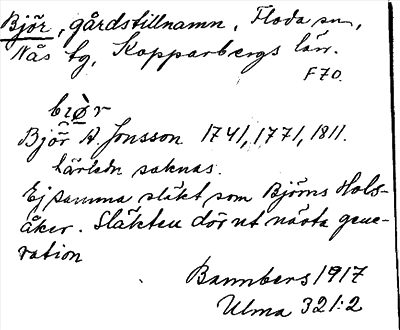 Björ, gårdstillnamn, Floda sn,
Nås tg, Kopparbergs län.
F70.
biø̀r
Björ A. Jonsson 1741, 1771, 1811.
härledn saknas.
Ej samma släkt som Björns Hols-
åker. Släkten dör ut nästa gene-
ration
Bannbers 1917
Ulma 321:2